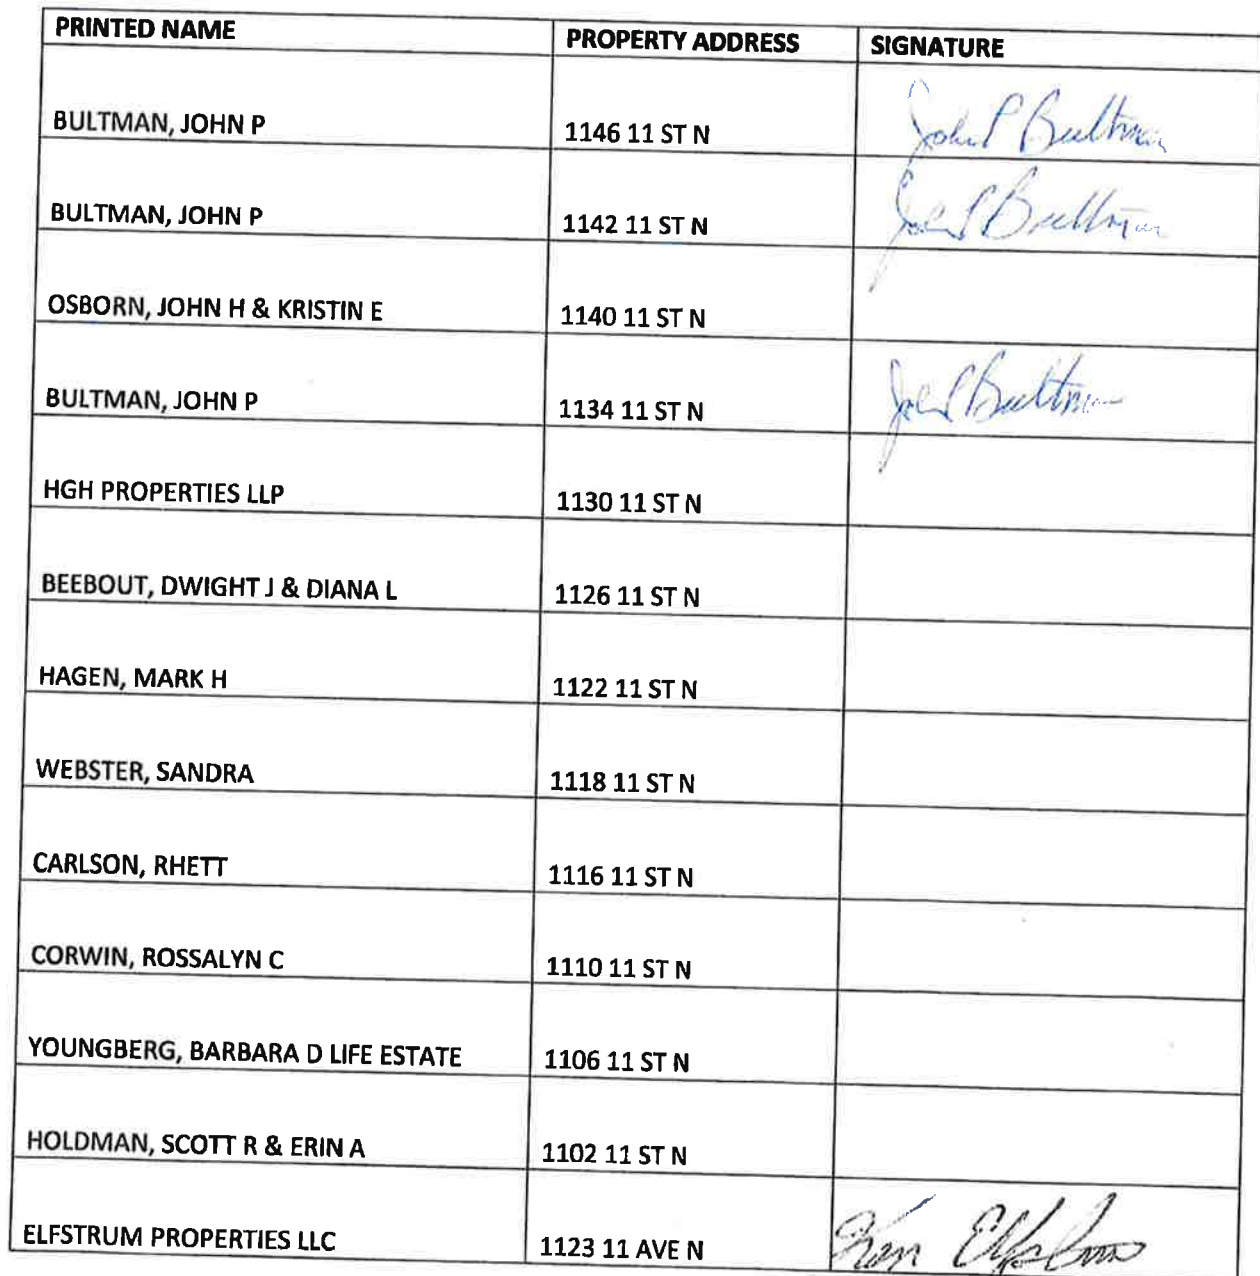 PRINTED NAME PROPERTY ADDRESS SIGNATURE
BULTMAN, JOHN P 1146 11 ST N John P Bultman
BULTMAN, JOHN P 1142 11 ST N John P Bultman
OSBORN, JOHN H & KRISTIN E 1140 11 ST N
BULTMAN, JOHN P 1134 11 ST N John P Bultman
HGH PROPERTIES LLP 1130 11 ST N
BEEBOUT, DWIGHT J & DIANA L 1126 11 ST N
HAGEN, MARK H 1122 11 ST N
WEBSTER, SANDRA 1118 11 ST N
CARLSON, RHETT 1116 11 ST N
CORWIN, ROSSALYN C 1110 11 ST N
YOUNGBERG, BARBARA D LIFE ESTATE 1106 11 ST N
HOLDMAN, SCOTT R & ERIN A 1102 11 ST N
ELFSTRUM PROPERTIES LLC 1123 11 AVE N